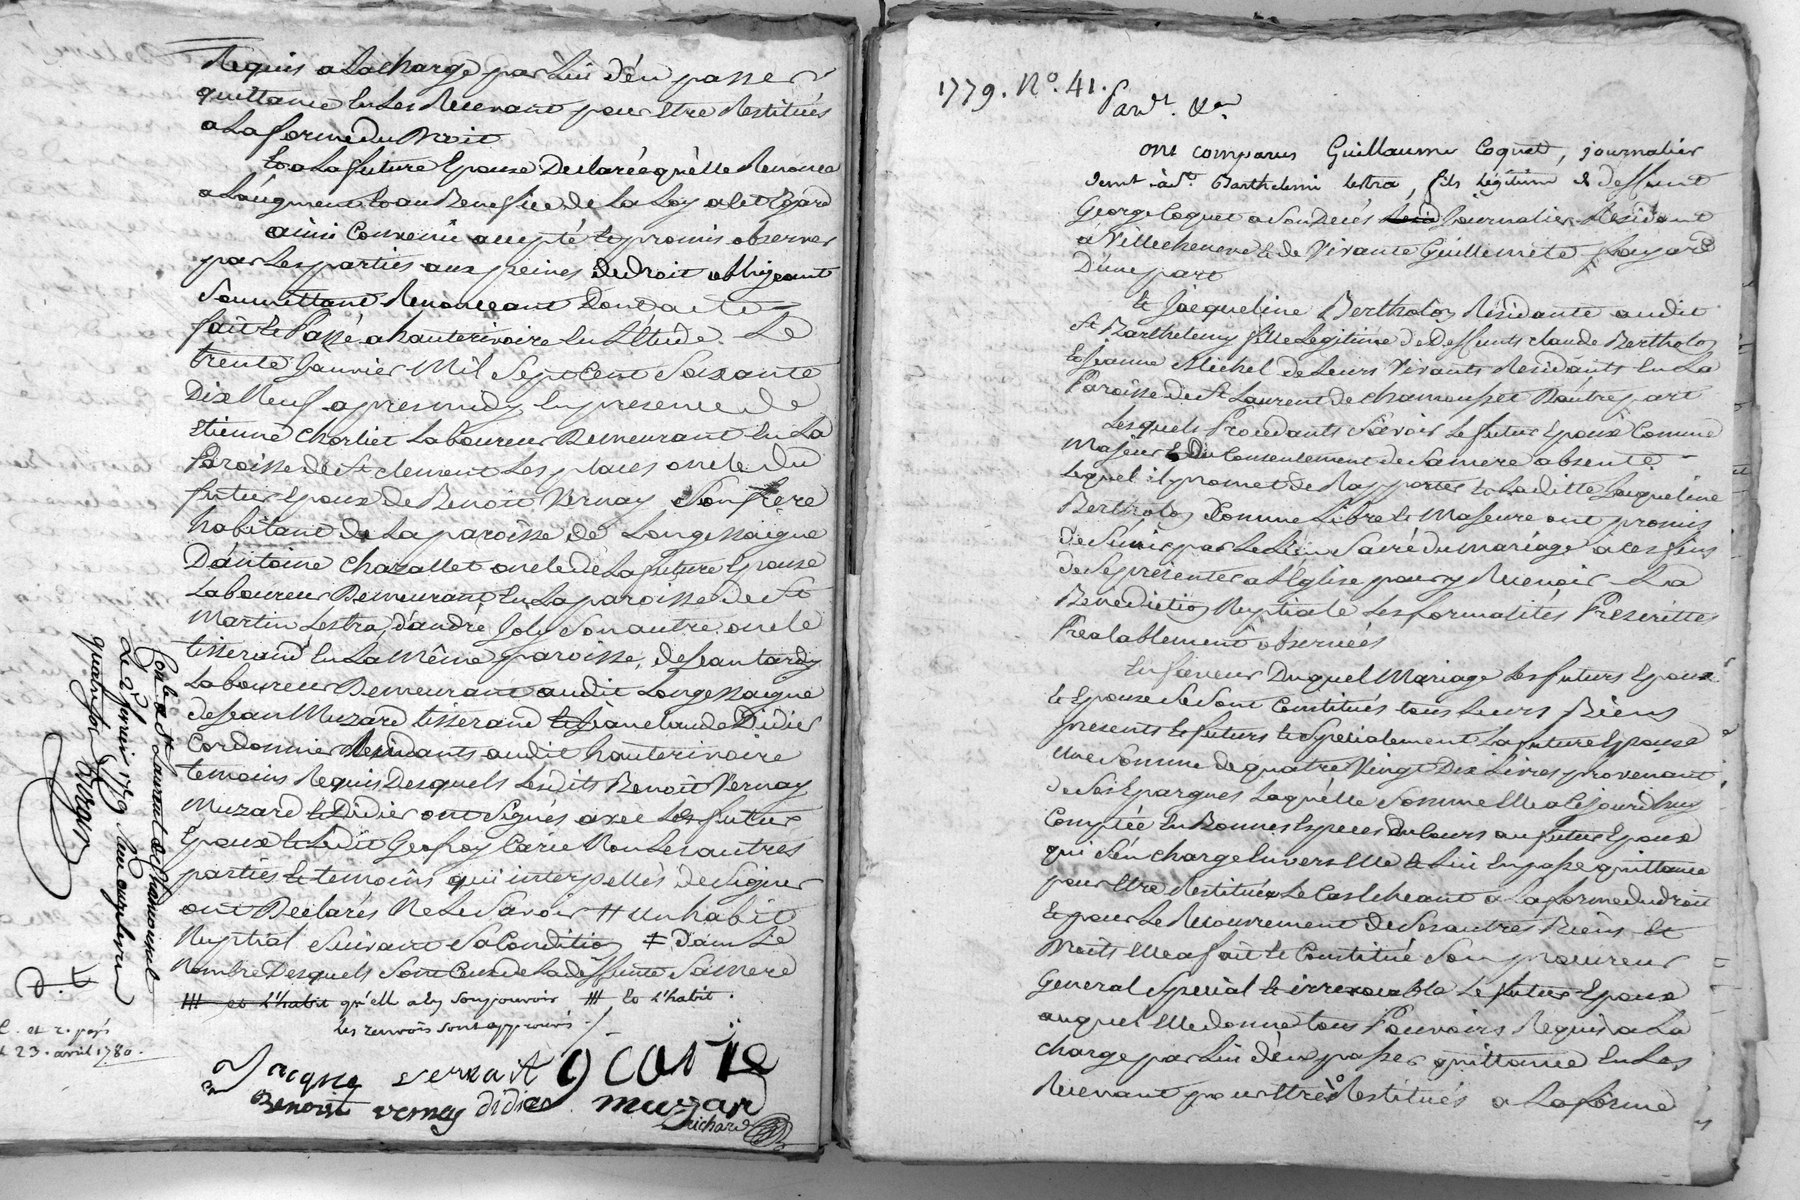 Requis a La charge par Lui d'en passer
quittance En Les Recevant pour Etre Restitués
a La forme du Droit
Et a La future Epouse Declaréé qu'elle Renonce
a L'augment Et au Benefice de La Loy a cet Egard
ainsi Convenu accepté Et promis observer
par Les parties aux peines de droit obligeant
Soumettant Renonceant Dont acte
fait Et Passé a hauterivoire En L'Etude Le
trente Janvier Mil Sept Cent Soixante
Dix Neuf apres midy En presence de
Etienne Chorliet Laboureur Demeurant En La
Paroisse de St clement Les places oncle du
futur Epoux de Benoit Vernay Son frere
habitant de La paroisse de Longessaigne
D'antoine Chazallet oncle de La future Epouse
Laboureur Demeurant En La paroisse de St
Martin Lestra, d'andré Joly Son autre oncle
tisserand En La Même paroisse, de Jean tardy
Laboureur Demeurant audit Longessaigne
de Jean Muzard tisserand Et Jeane Claude Didier
Cordonnier Residants audit hauterivoire
temoins Requis Desquels Lesdits Benoit Vernay
Muzard Et Didier ont Signés avec Le futur
Epoux Et Ledit Geofroy Carie Non Les autres
parties Et temoins qui interpellés de Signer
ont Declarés Ne Le Savoir # un habit
Nuptial Suivant Sa Condition ‡ dans Le
Nombre Desquels Sont Ceux de La deffunte Sa mere
# et L'habit qu'elle a En Son pouvoir # Et L'habit.
les renvois sont approuvés
Jacque vernait g carie
Benoist vernay didier muzard
Richard
Con.lé a St Laurent de Chamousset
Le 2 fevrier 1779
quatre
c. et z. payé
23. avril 1780.
1779. N°. 41.
Pard.t &a.
ont comparus Guillaume Coquet, journalier
dem.t à St Barthelemi lestra, fils légitime de deffunt
George Coquet a Son Decés journalier Residant
à Villecheneve Et de Vivante Guillemete
D'une part
Et Jacqueline Bertholon Résidante audit
St Barthelemy fille Legitime de Deffunts claude Bertholon
Et Jeanne Michel de Leurs Vivants Residants En La
Paroisse de St Laurent de chamousset D'autre part
Lesquels Procedants Savoir Le futur Epoux Comme
Majeur Et du Consentement de Sa mere absente
Lequel il promet de Rapporter Et Laditte Jacqueline
Bertholon Comme Libre Et Majeure ont promis
de S'unir par Le Lien Sacré du mariage a ces fins
de Se présenter a L'Eglise pour y Recevoir La
Bénédiction Nuptiale Les formalités Prescrittes
Prealablement observées
En faveur Duquel Mariage Les futurs Epoux
Et Epouse Se Sont Constitués tous Leurs Biens
presents Et futurs Et Specialement La future Epouse
Une Somme de quatre Vingt Dix Livres provenant
de Ses Epargnes Laquelle Somme Elle a Cejourd'huy
Comptée En Bonnes Especes Du Cours au futur Epoux
qui S'en charge Envers Elle Et Lui En passe quittance
pour Etre Restituée Le Cas Echeant a La forme du droit
Et pour Le Recouvrement de Ses autres Biens Et
Droits Elle a fait Et Constitué Son procureur
General Special Et irrevocable Le futur Epoux
auquel Elle donne tous Pouvoirs Requis a La
charge par Lui d'en passer quittance En Les
Recevant pour Etre Restitués a La forme